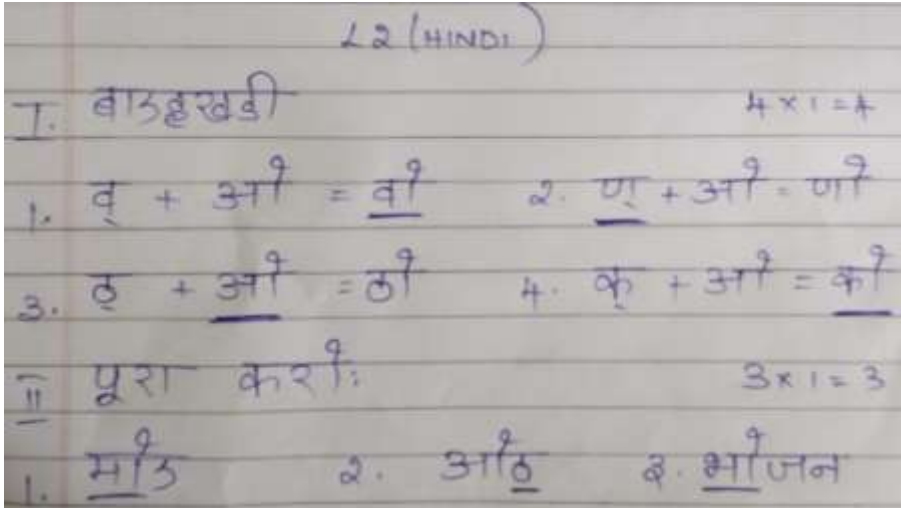 L2 (HINDI)
I. बारहखडी 4 x 1 = 4
1. व् + ओ = वो २. ण् + ओ = णो
3. ठ् + ओ = ठो 4. क् + ओ = को
II पूरा करो: 3 x 1 = 3
1. मोड २. ओठ ३. भोजन